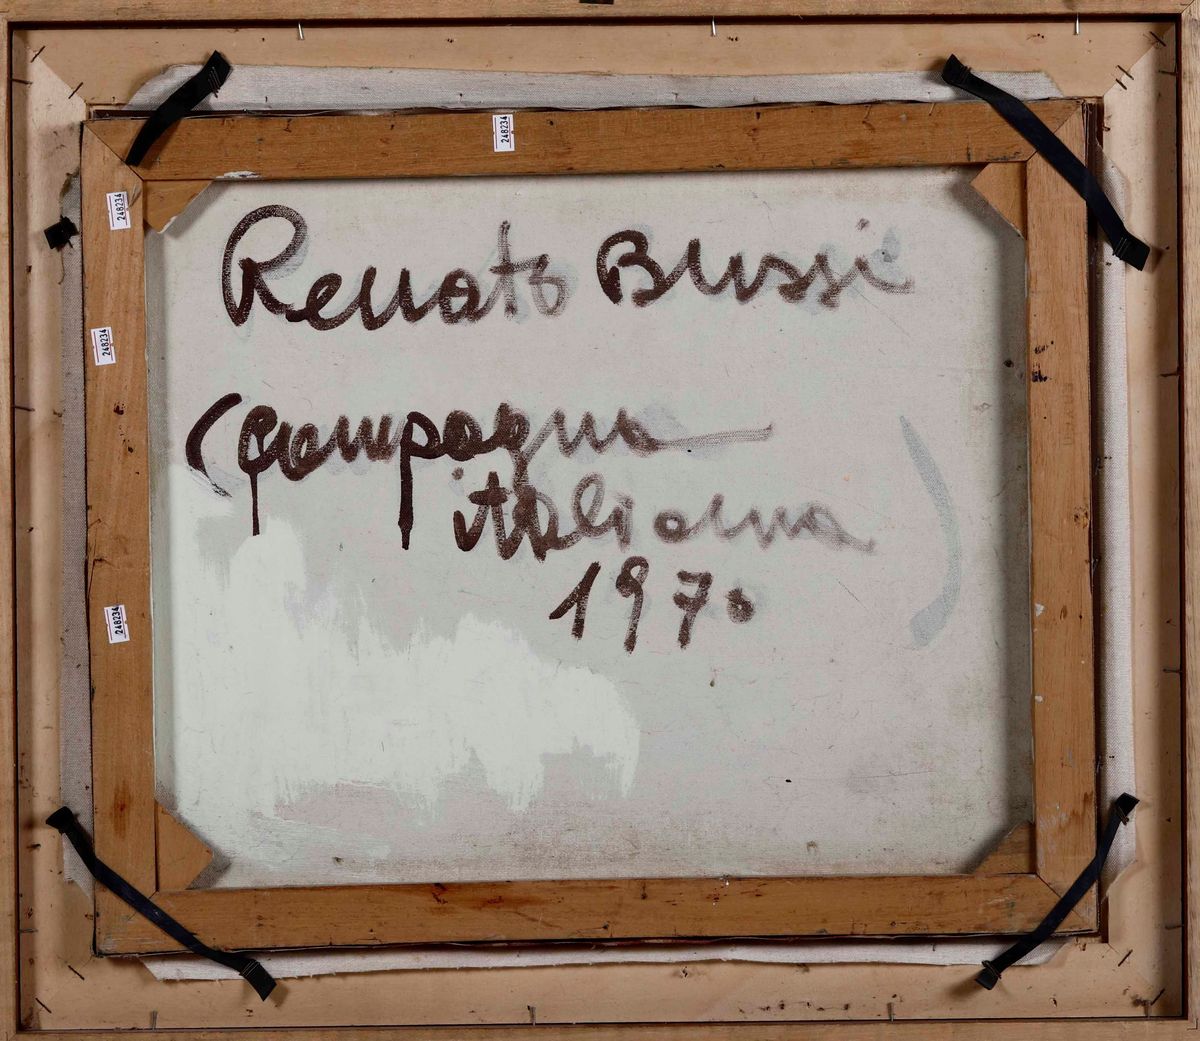 248234
248234
Renato Bussi
248234
(Campagna
italiana
1970 )
248234